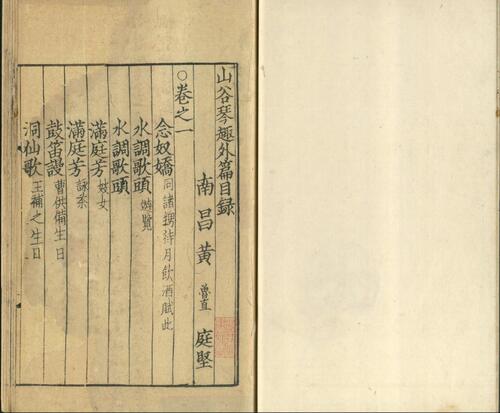 山谷琴趣外篇目錄
南昌黃 魯直 庭堅
○卷之一
念奴嬌 同諸甥待月飲酒賦此
水調歌頭 遊覽
水調歌頭
滿庭芳 妓女
滿庭芳 詠茶
鼓笛謾 曹供備生日
洞仙歌 王補之生日